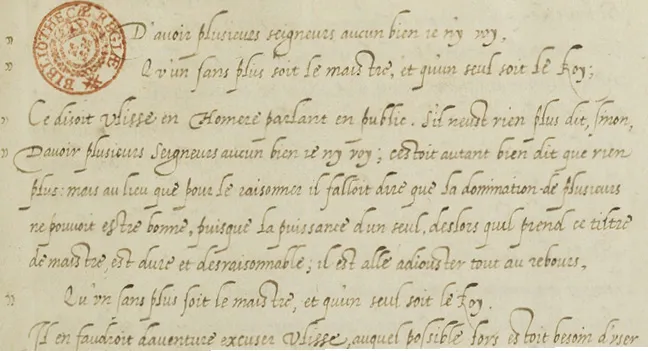 BIBLIOTHECÆ REGIÆ
D'avoir plusieurs seigneurs aucun bien ie n'y voy,
Qu'un sans plus soit le maistre, et qu'un seul soit le Roy;
Ce disoit Ulisse en Homere parlant en public. S'il neust rien plus dit, sinon,
Davoir plusieurs Seigneurs aucun bien ie ny voy; cestoit autant bien dit que rien
plus: mais au lieu que pour le raisonner il falloit dire que la domination de plusieurs
ne pouvoit estre bonne, puisque la puissance d'un seul, deslors quil prend ce tiltre
de maistre, est dure et desraisonnable; il est allé adiouster tout au rebours,
Qu'vn sans plus soit le maistre, et qu'un seul soit le Roy.
Il en faudroit daventure excuser Ulisse, auquel possible lors estoit besoin d'vser